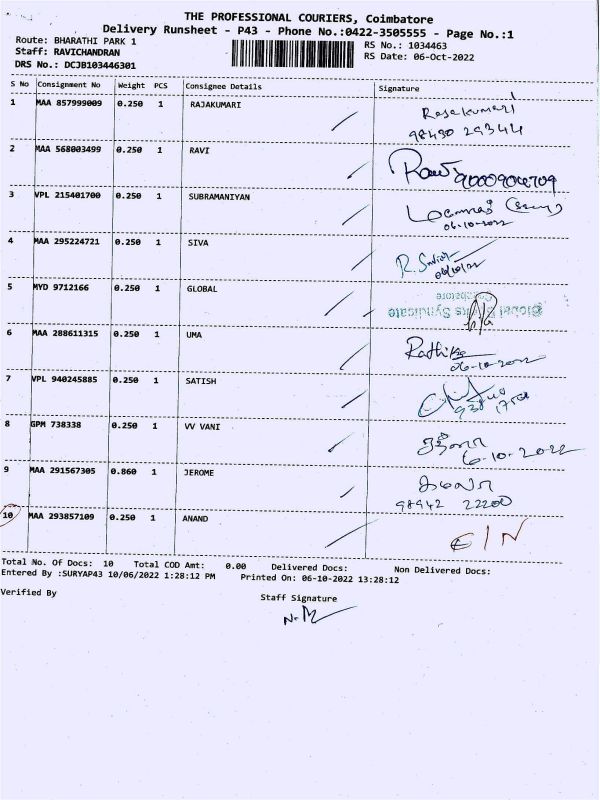 THE PROFESSIONAL COURIERS, Coimbatore
Delivery Runsheet - P43 - Phone No.:0422-3505555 - Page No.:1
Route: BHARATHI PARK 1
RS No.: 1034463
Staff: RAVICHANDRAN
RS Date: 06-Oct-2022
DRS No.: DCJB103446301
S No Consignment No Weight PCS Consignee Details Signature
1 MAA 857999009 0.250 1 RAJAKUMARI Rajakumari
98430 29344
2 MAA 568003499 0.250 1 RAVI Ravi
3 VPL 215401700 0.250 1 SUBRAMANIYAN
06-10-2022
4 MAA 295224721 0.250 1 SIVA
06/10/22
5 MYD 9712166 0.250 1 GLOBAL
Coimbatore
Global Syndicate
6 MAA 288611315 0.250 1 UMA Rathika
06-10-2022
7 VPL 940245885 0.250 1 SATISH
8 GPM 738338 0.250 1 VV VANI
6-10-2022
9 MAA 291567305 0.860 1 JEROME
98942 22200
10 MAA 293857109 0.250 1 ANAND
Total No. Of Docs: 10 Total COD Amt: 0.00 Delivered Docs: Non Delivered Docs:
Entered By :SURYAP43 10/06/2022 1:28:12 PM Printed On: 06-10-2022 13:28:12
Verified By
Staff Signature